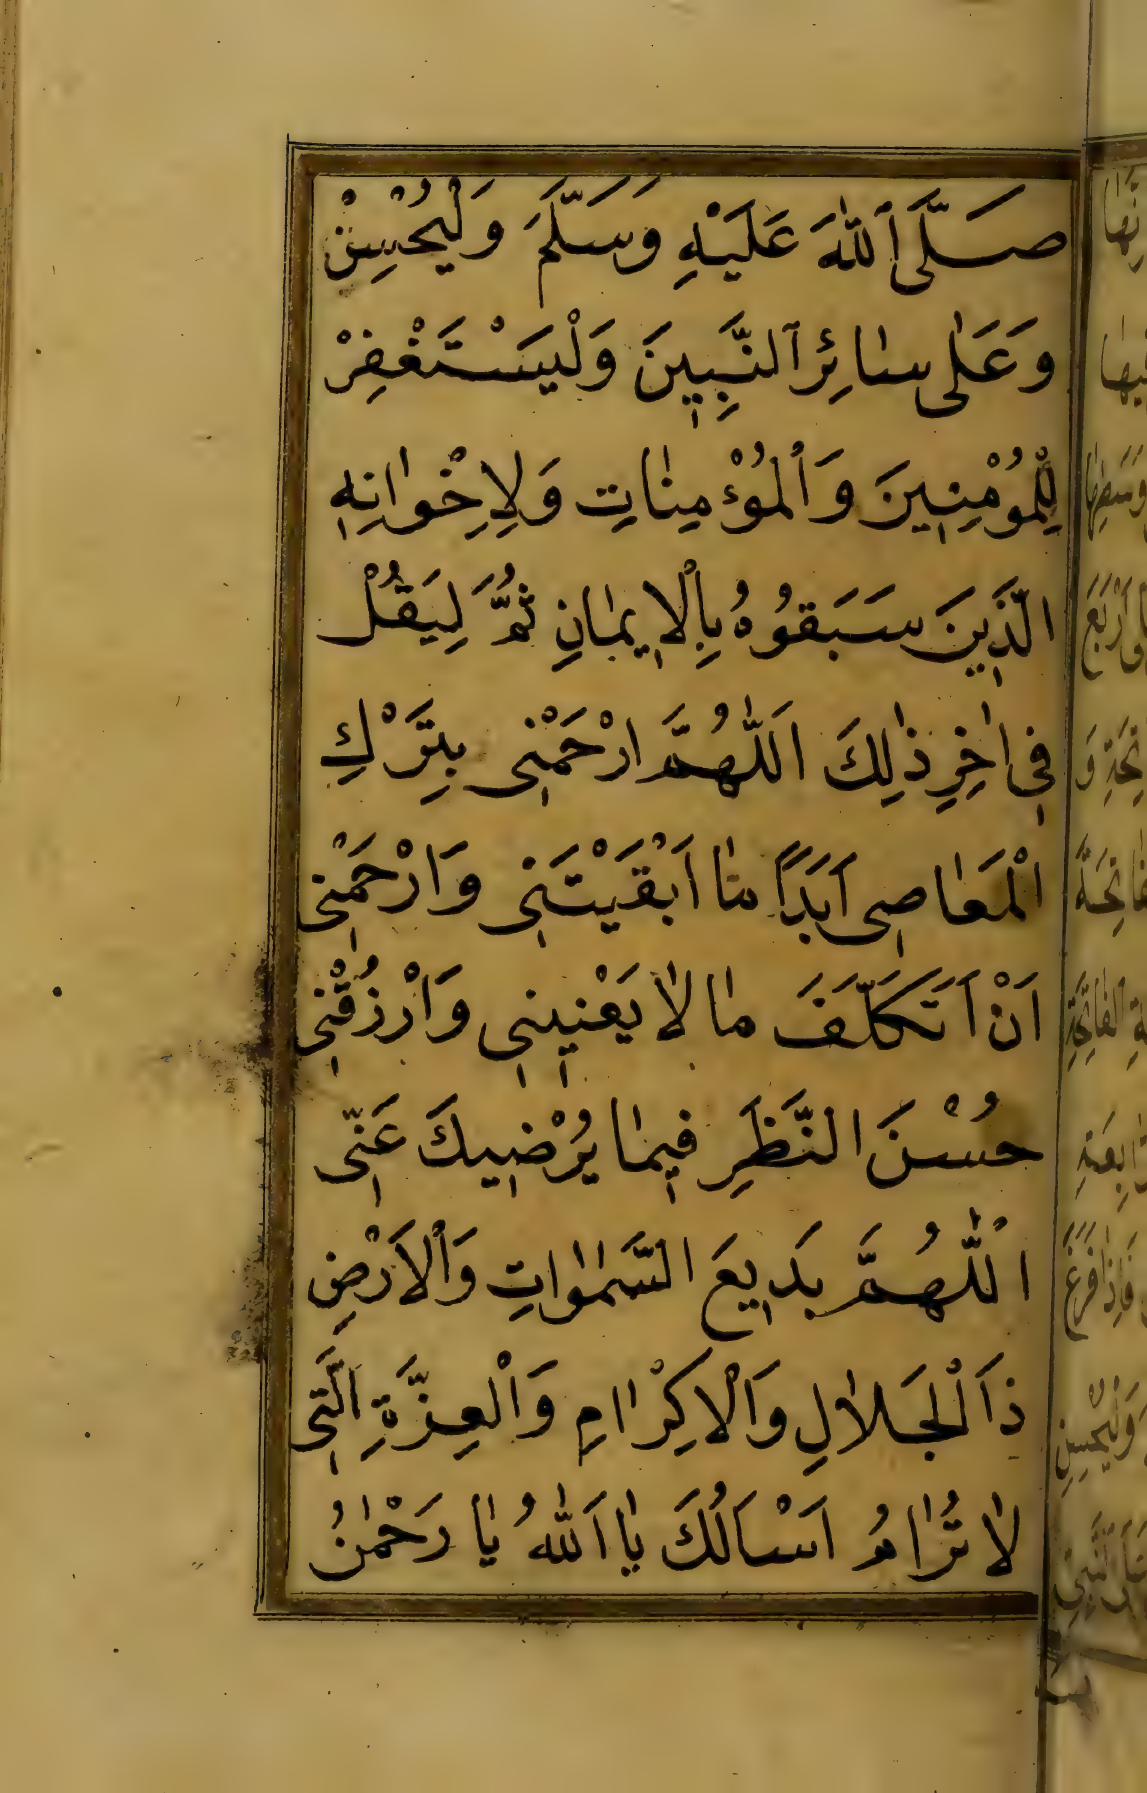 صَلَّى اللهُ عَلَيْهِ وَسَلَّمَ وَلْيُحْسِنْ
وَعَلٰى سٰائِرِ النَّبِيِينَ وَلْيَسْتَغْفِرْ
لِلْمُوْمِنِينَ وَالْمُوْمِنٰاتِ وَلِاِخْوٰانِهِ
الَّذِينَ سَبَقُوهُ بِالْاِيمٰانِ ثُمَّ لِيَقُلْ
فِى اٰخِرِ ذٰلِكَ اَللّٰهُمَّ ارْحَمْنِى بِتَرْكِ
الْمَعٰاصِى اَبَدًا مٰا اَبْقَيْتَنِى وَارْحَمْنِى
اَنْ اَتَكَلَّفَ مٰا لاٰ يَعْنِينِى وَارْزُقْنِى
حُسْنَ النَّظَرِ فِيمٰا يُرْضِيكَ عَنِّى
اَللّٰهُمَّ بَدِيعَ السَّمٰوٰاتِ وَالْاَرْضِ
ذَا الْجَلاٰلِ وَالْاِكْرٰامِ وَالْعِزَّةِ الَّتِى
لاٰ تُرٰامُ اَسْاَلُكَ يٰا اَللهُ يٰا رَحْمٰنُ